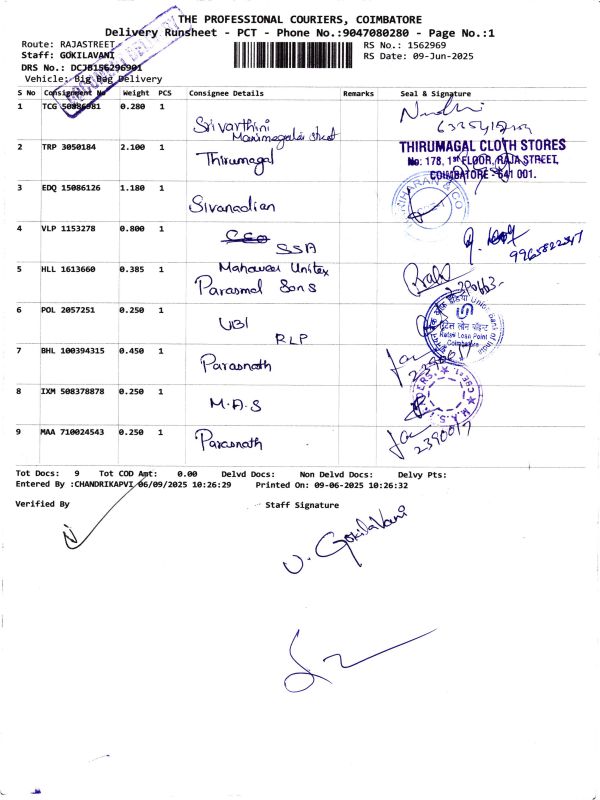 THE PROFESSIONAL COURIERS, COIMBATORE
Delivery Runsheet - PCT - Phone No.:9047080280 - Page No.:1
Route: RAJASTREET
RS No.: 1562969
Staff: GOKILAVANI
RS Date: 09-Jun-2025
DRS No.: DCJB156296901
Vehicle: Big Bag Delivery
S No Consignment No Weight PCS Consignee Details Remarks Seal & Signature
1 TCG 50886981 0.280 1 Srivarthini
Manimegalai street
2 TRP 3050184 2.100 1 Thirumagal
THIRUMAGAL CLOTH STORES
No: 178, 1st FLOOR, RAJA STREET,
COIMBATORE - 641 001.
3 EDQ 15086126 1.180 1 Sivanadian
4 VLP 1153278 0.800 1 SSA
9965822347
5 HLL 1613660 0.385 1 Mahaveer Unitex
Parasmal Sons
6 POL 2057251 0.250 1 UBI
RLP
Union Bank of India
Retail Loan Point
Coimbatore
7 BHL 100394315 0.450 1 Parasnath
2390017
8 IXM 508378878 0.250 1 M.A.S
9 MAA 710024543 0.250 1 Parasnath
2390017
Tot Docs: 9 Tot COD Amt: 0.00 Delvd Docs: Non Delvd Docs: Delvy Pts:
Entered By :CHANDRIKAPVI 06/09/2025 10:26:29 Printed On: 09-06-2025 10:26:32
Verified By Staff Signature
V. Gokilavani